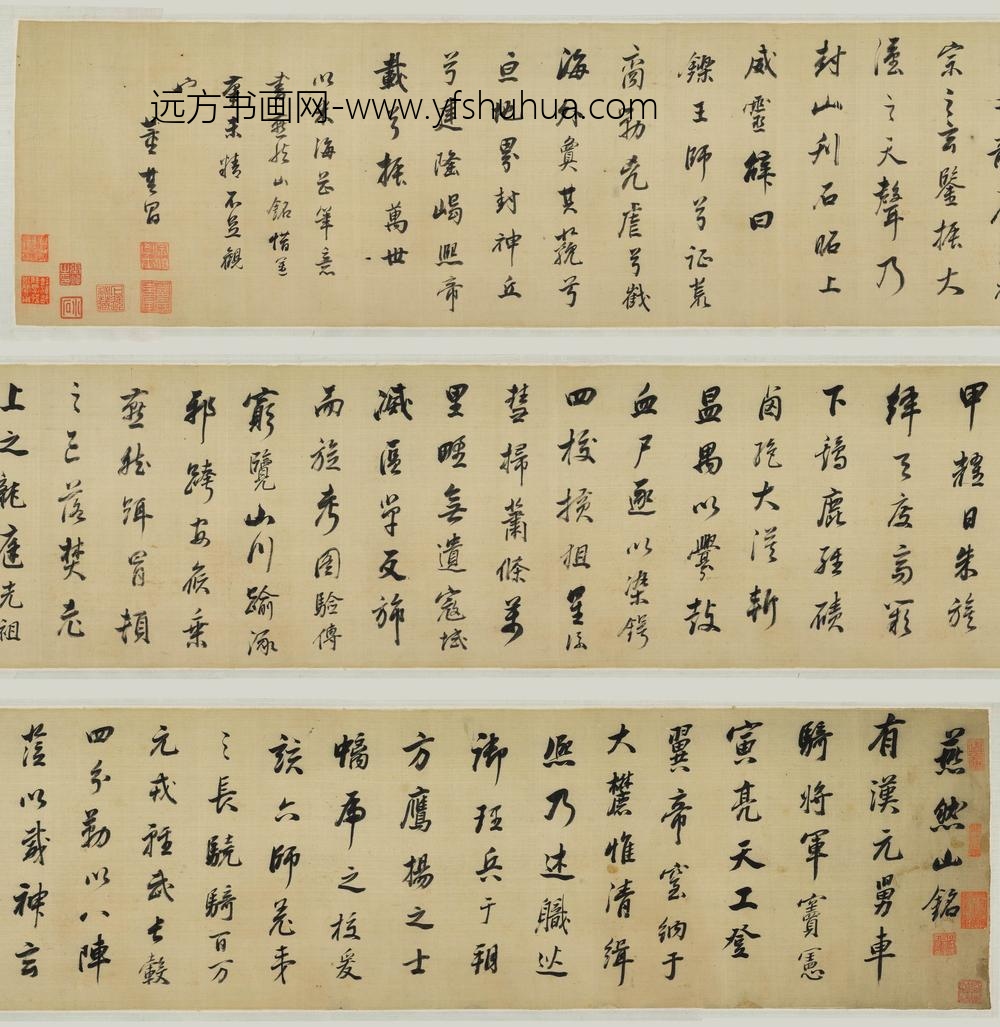 燕然山銘
有漢元舅車
騎將軍竇憲
寅亮天工登
翼帝室納于
大麓惟清緝
熙乃述職巡
御理兵于朔
方鷹揚之士
螭虎之校爰
該六師
之長驍騎百万
元戎輕武長轂
四分勒以八陣
蒞以威神玄
甲耀日朱旗
絳天度高闕
下鷄鹿經磧
鹵絕大漠斬
溫禺以釁鼓
血尸逐以染鍔
四校橫徂星流
彗掃蕭條萬
里野無遺寇域
滅區單反旆
而旋考圖驗傳
窮覽山川踰涿
邪跨安侯乘
燕然躡冒頓
之區落焚老
上之龍庭光祖
宗之玄鑒振大
漢之天聲乃
封山刊石昭上
威靈辭曰
鑠王師兮征荒
裔勦兇虐兮截
海外敻其邈兮
亘地界封神丘
兮建隆嵑熙帝
載兮振萬世
以米海岳筆意
書燕然山銘惜
摹未精不足觀
也
董其昌
远方书画网-www.yfshuhua.com